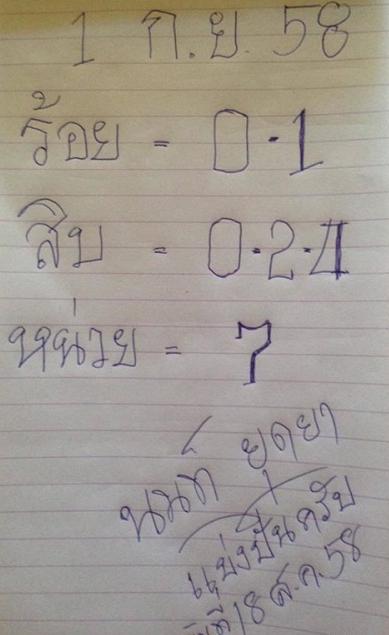 1 ก.ย. 58
ร้อย = 0·1
สิบ = 0·2·4
หน่วย = 7
นนท์ ยุดยา
แบ่งปันครับ
18 ส.ค. 58